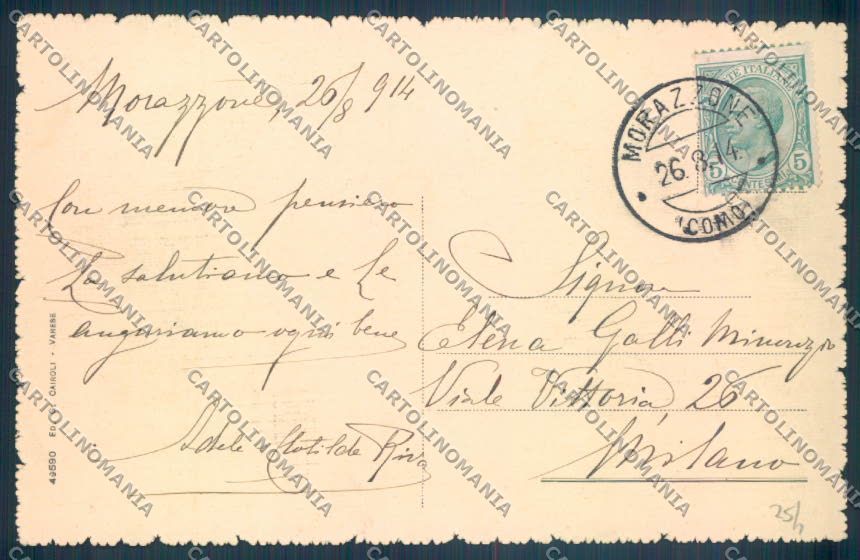 Morazzone, 26/8 914
Con memore pensiero
La salutiamo e Le
auguriamo ogni bene
Adele Clotilde Riva
49590 ED. G. CAIROLI - VARESE
POSTE ITALIANE
5 5
MORAZZONE
26.8.14.
(COMO)
Signora
Elena Galli
Viale Vittoria, 26
Milano
25/
CARTOLINOMANIA